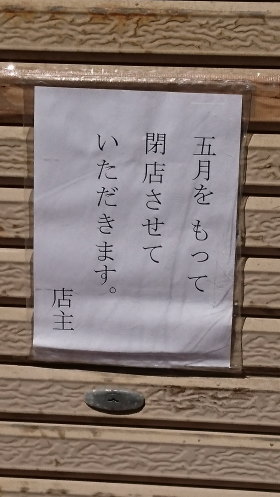 五月を もつて
閉店させて
いただきます。
店主